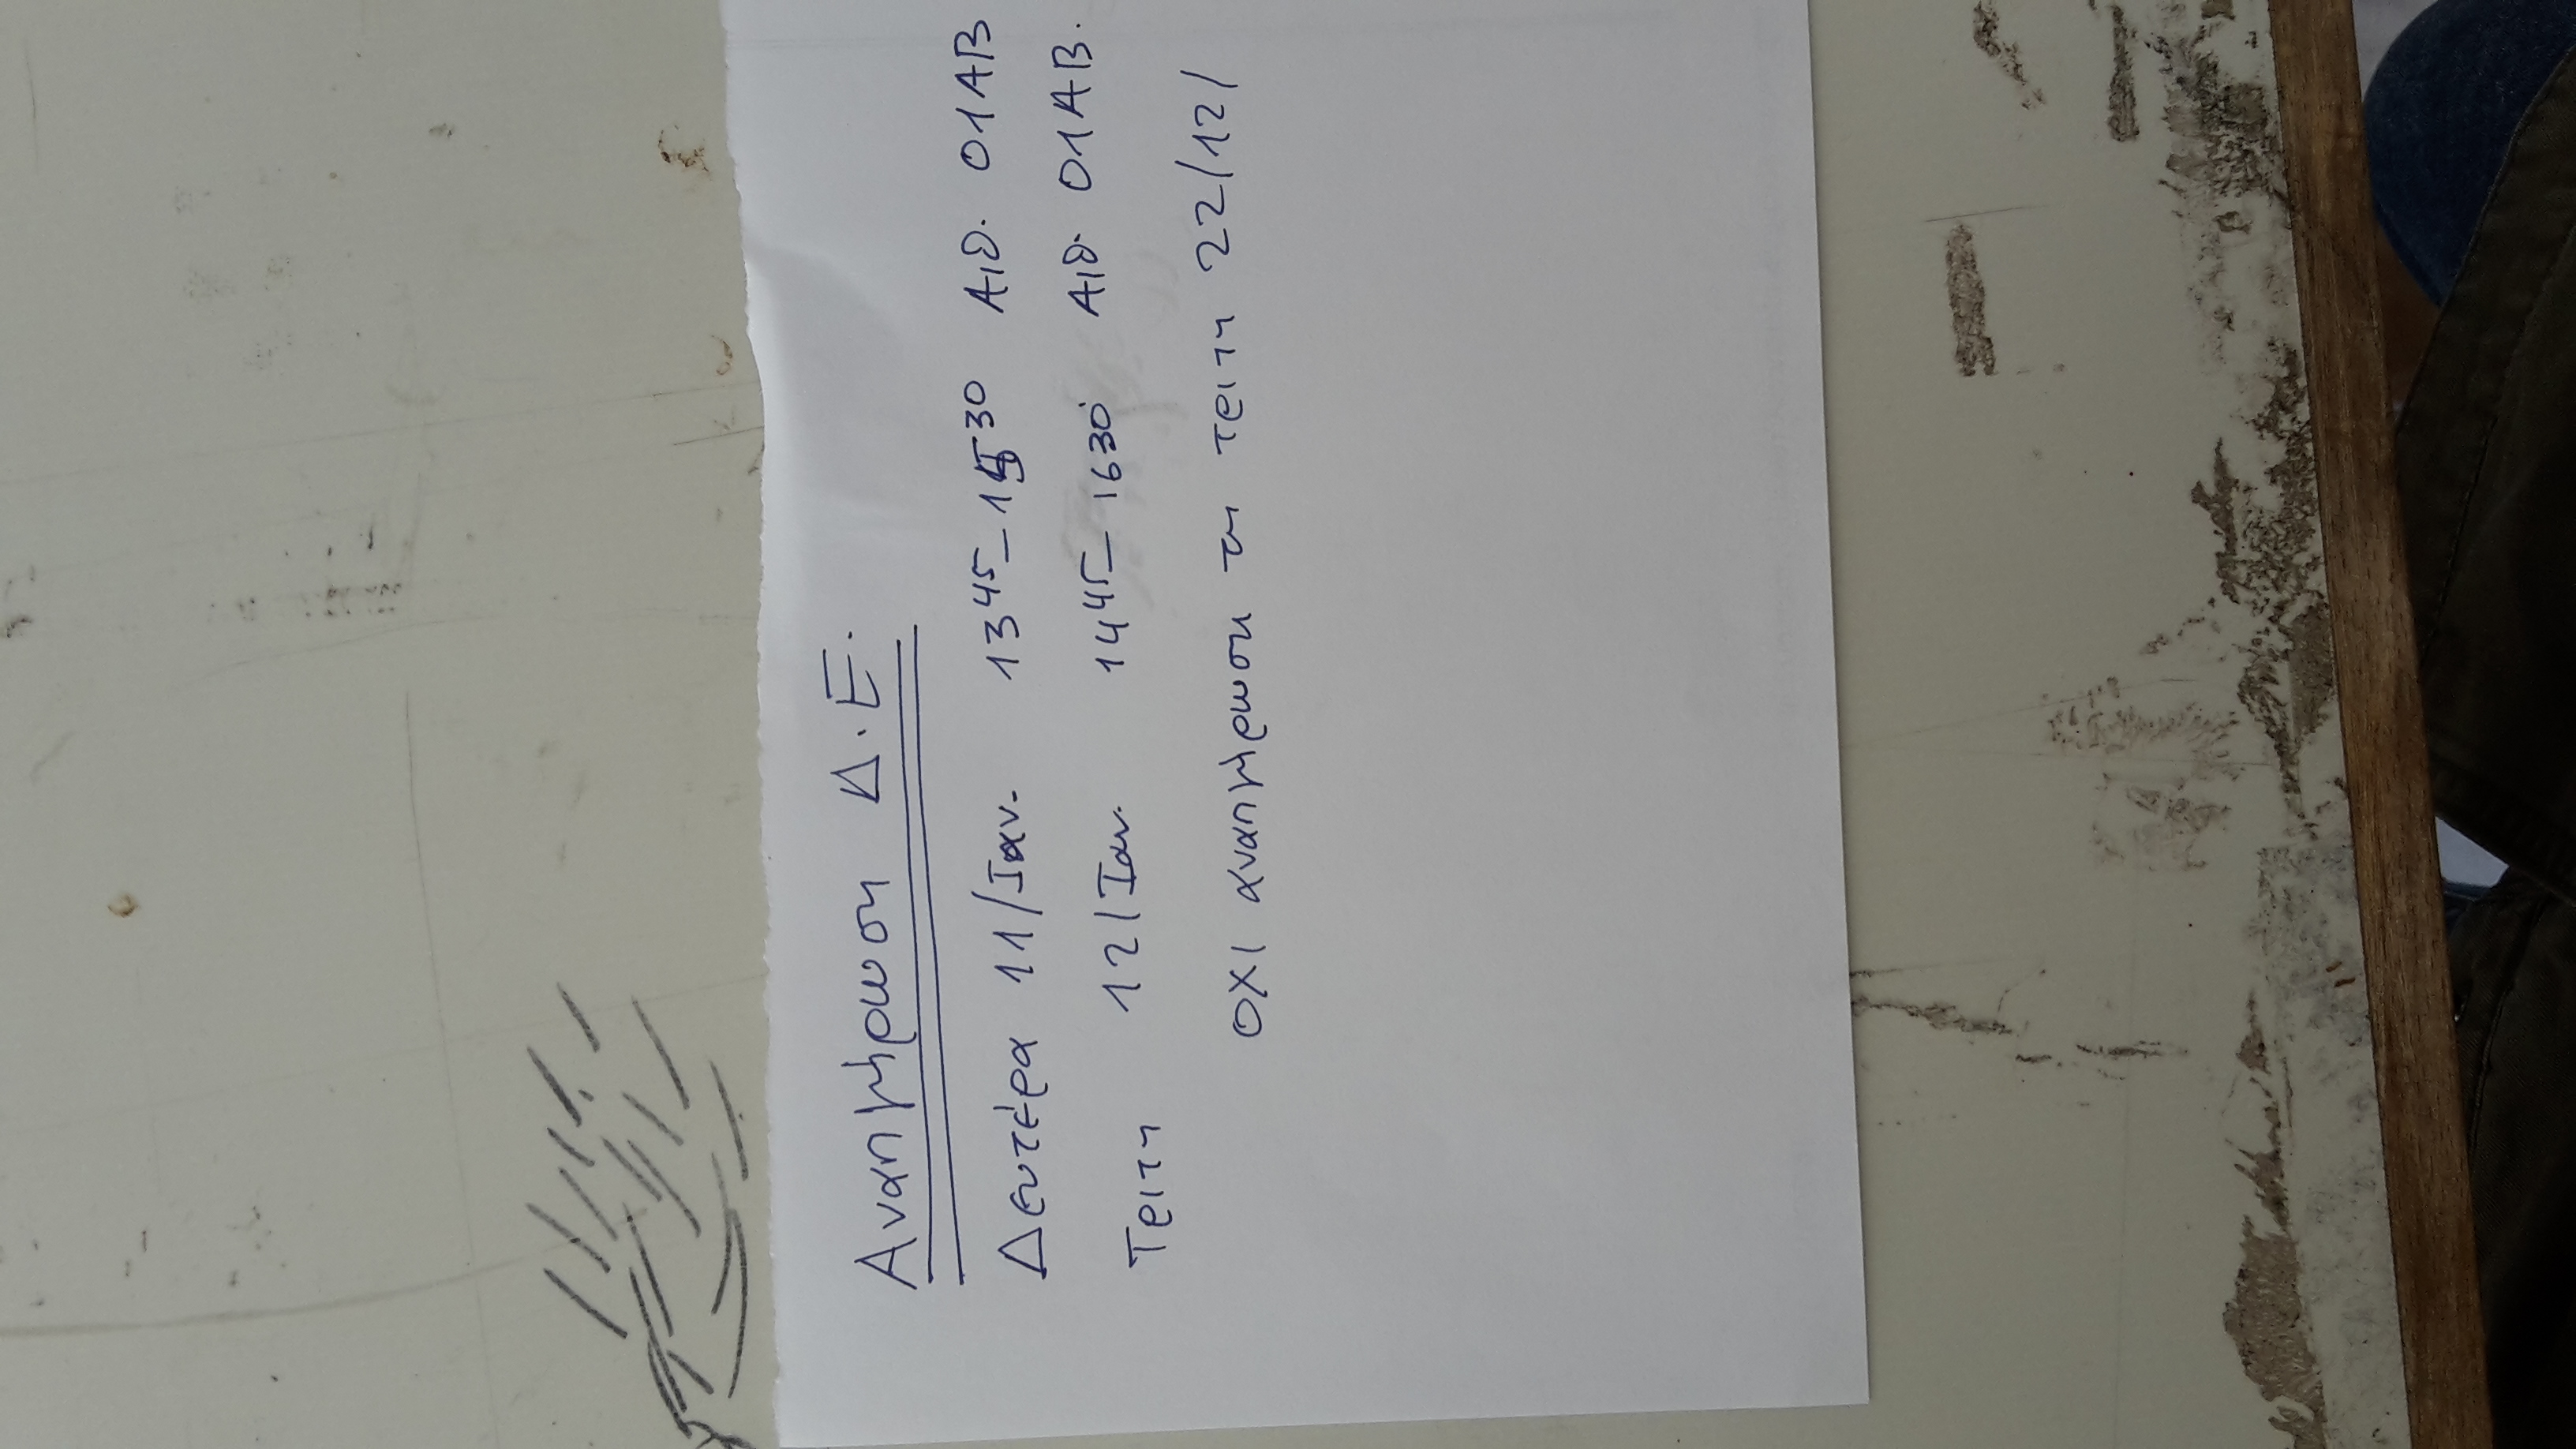 Αναπλήρωση Δ.Ε.
Δευτέρα 11/Ιαν. 13 45 - 15 30 Αιθ. 01ΑΒ
Τρίτη 12/Ιαν. 14 45 - 16 30 Αιθ. 01ΑΒ.
ΟΧΙ αναπλήρωση τη Τρίτη 22/12/